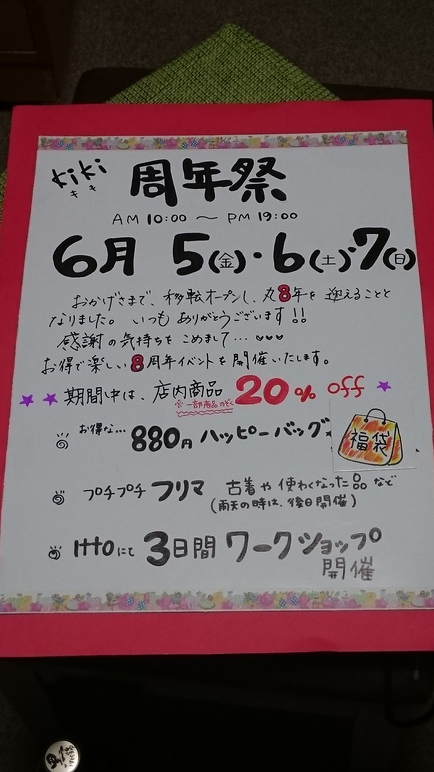 kiki 周年祭
キキ
AM 10:00 〜 PM 19:00
6月 5(金)・6(土)・7(日)
おかげさまで、移転オープンし、丸8年を 迎えることと
なりました。いつも ありがとうございます!!
感謝の気持ちを こめまして…♥♥♥
お得で楽しい8周年イベントを開催いたします。
★★期間中は、店内商品 20% off ★
※一部商品のぞく
お得な… 880円 ハッピーバッグ
福袋
プチプチ フリマ 古着や使わなくなった品など
(雨天の時は、後日開催)
Ittoにて 3日間 ワークショップ
開催